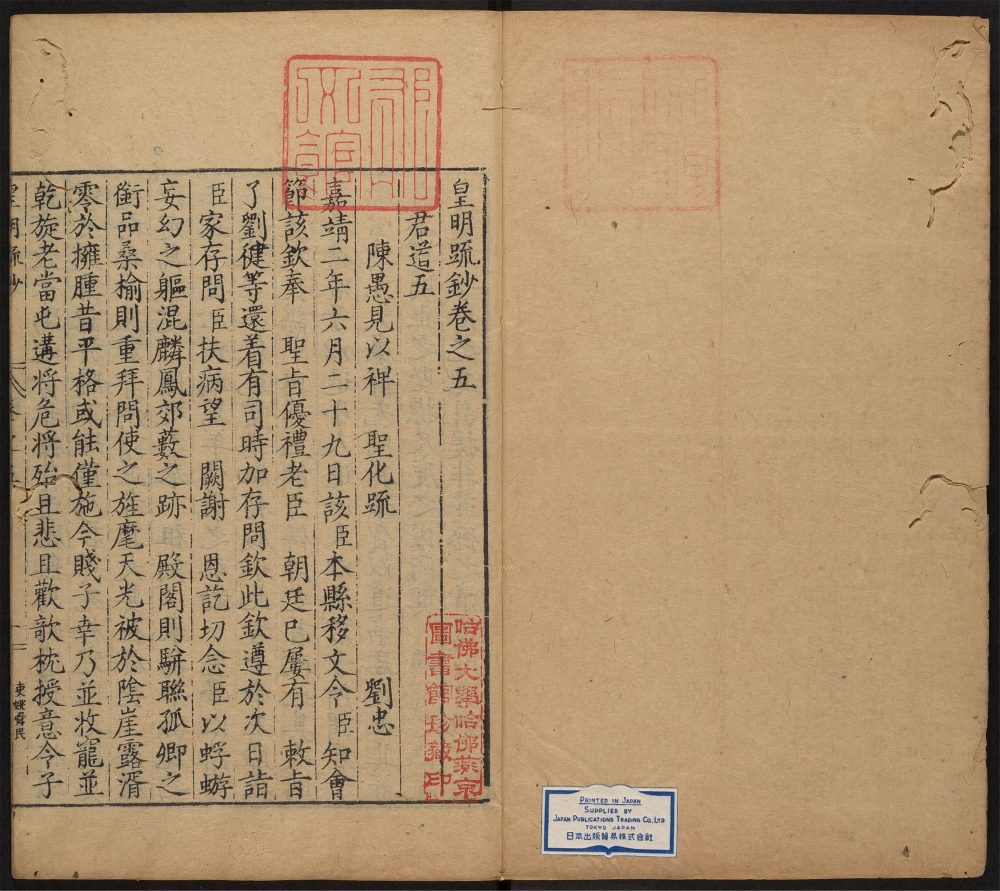 皇明疏鈔卷之五
君道五
陳愚見以裨　聖化疏　劉忠
嘉靖二年六月二十九日該臣本縣移文令臣知會
節該欽奉　聖旨優禮老臣　朝廷已屢有　敕旨
了劉健等還着有司時加存問欽此欽遵於次日詣
臣家存問臣扶病望　闕謝　恩訖切念臣以蜉蝣
妄幻之軀混麟鳳郊藪之跡　殿閣則駢聯孤卿之
銜品桑榆則重拜問使之旌麾天光被於陰崖露湑
零於擁腫昔平格或能僅施今賤子幸乃並收寵並
乾旋老當屯遘將危將殆且悲且歡欹枕授意令子
皇明疏鈔
東姚舜民
哈佛大學哈佛燕京
圖書館珍藏印
PRINTED IN JAPAN
SUPPLIED BY
JAPAN PUBLICATIONS TRADING CO., LTD
TOKYO JAPAN
日本出版貿易株式会社